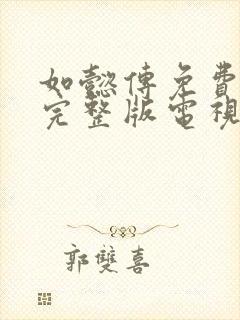 如懿傳免費
完整版電視
郭雙喜